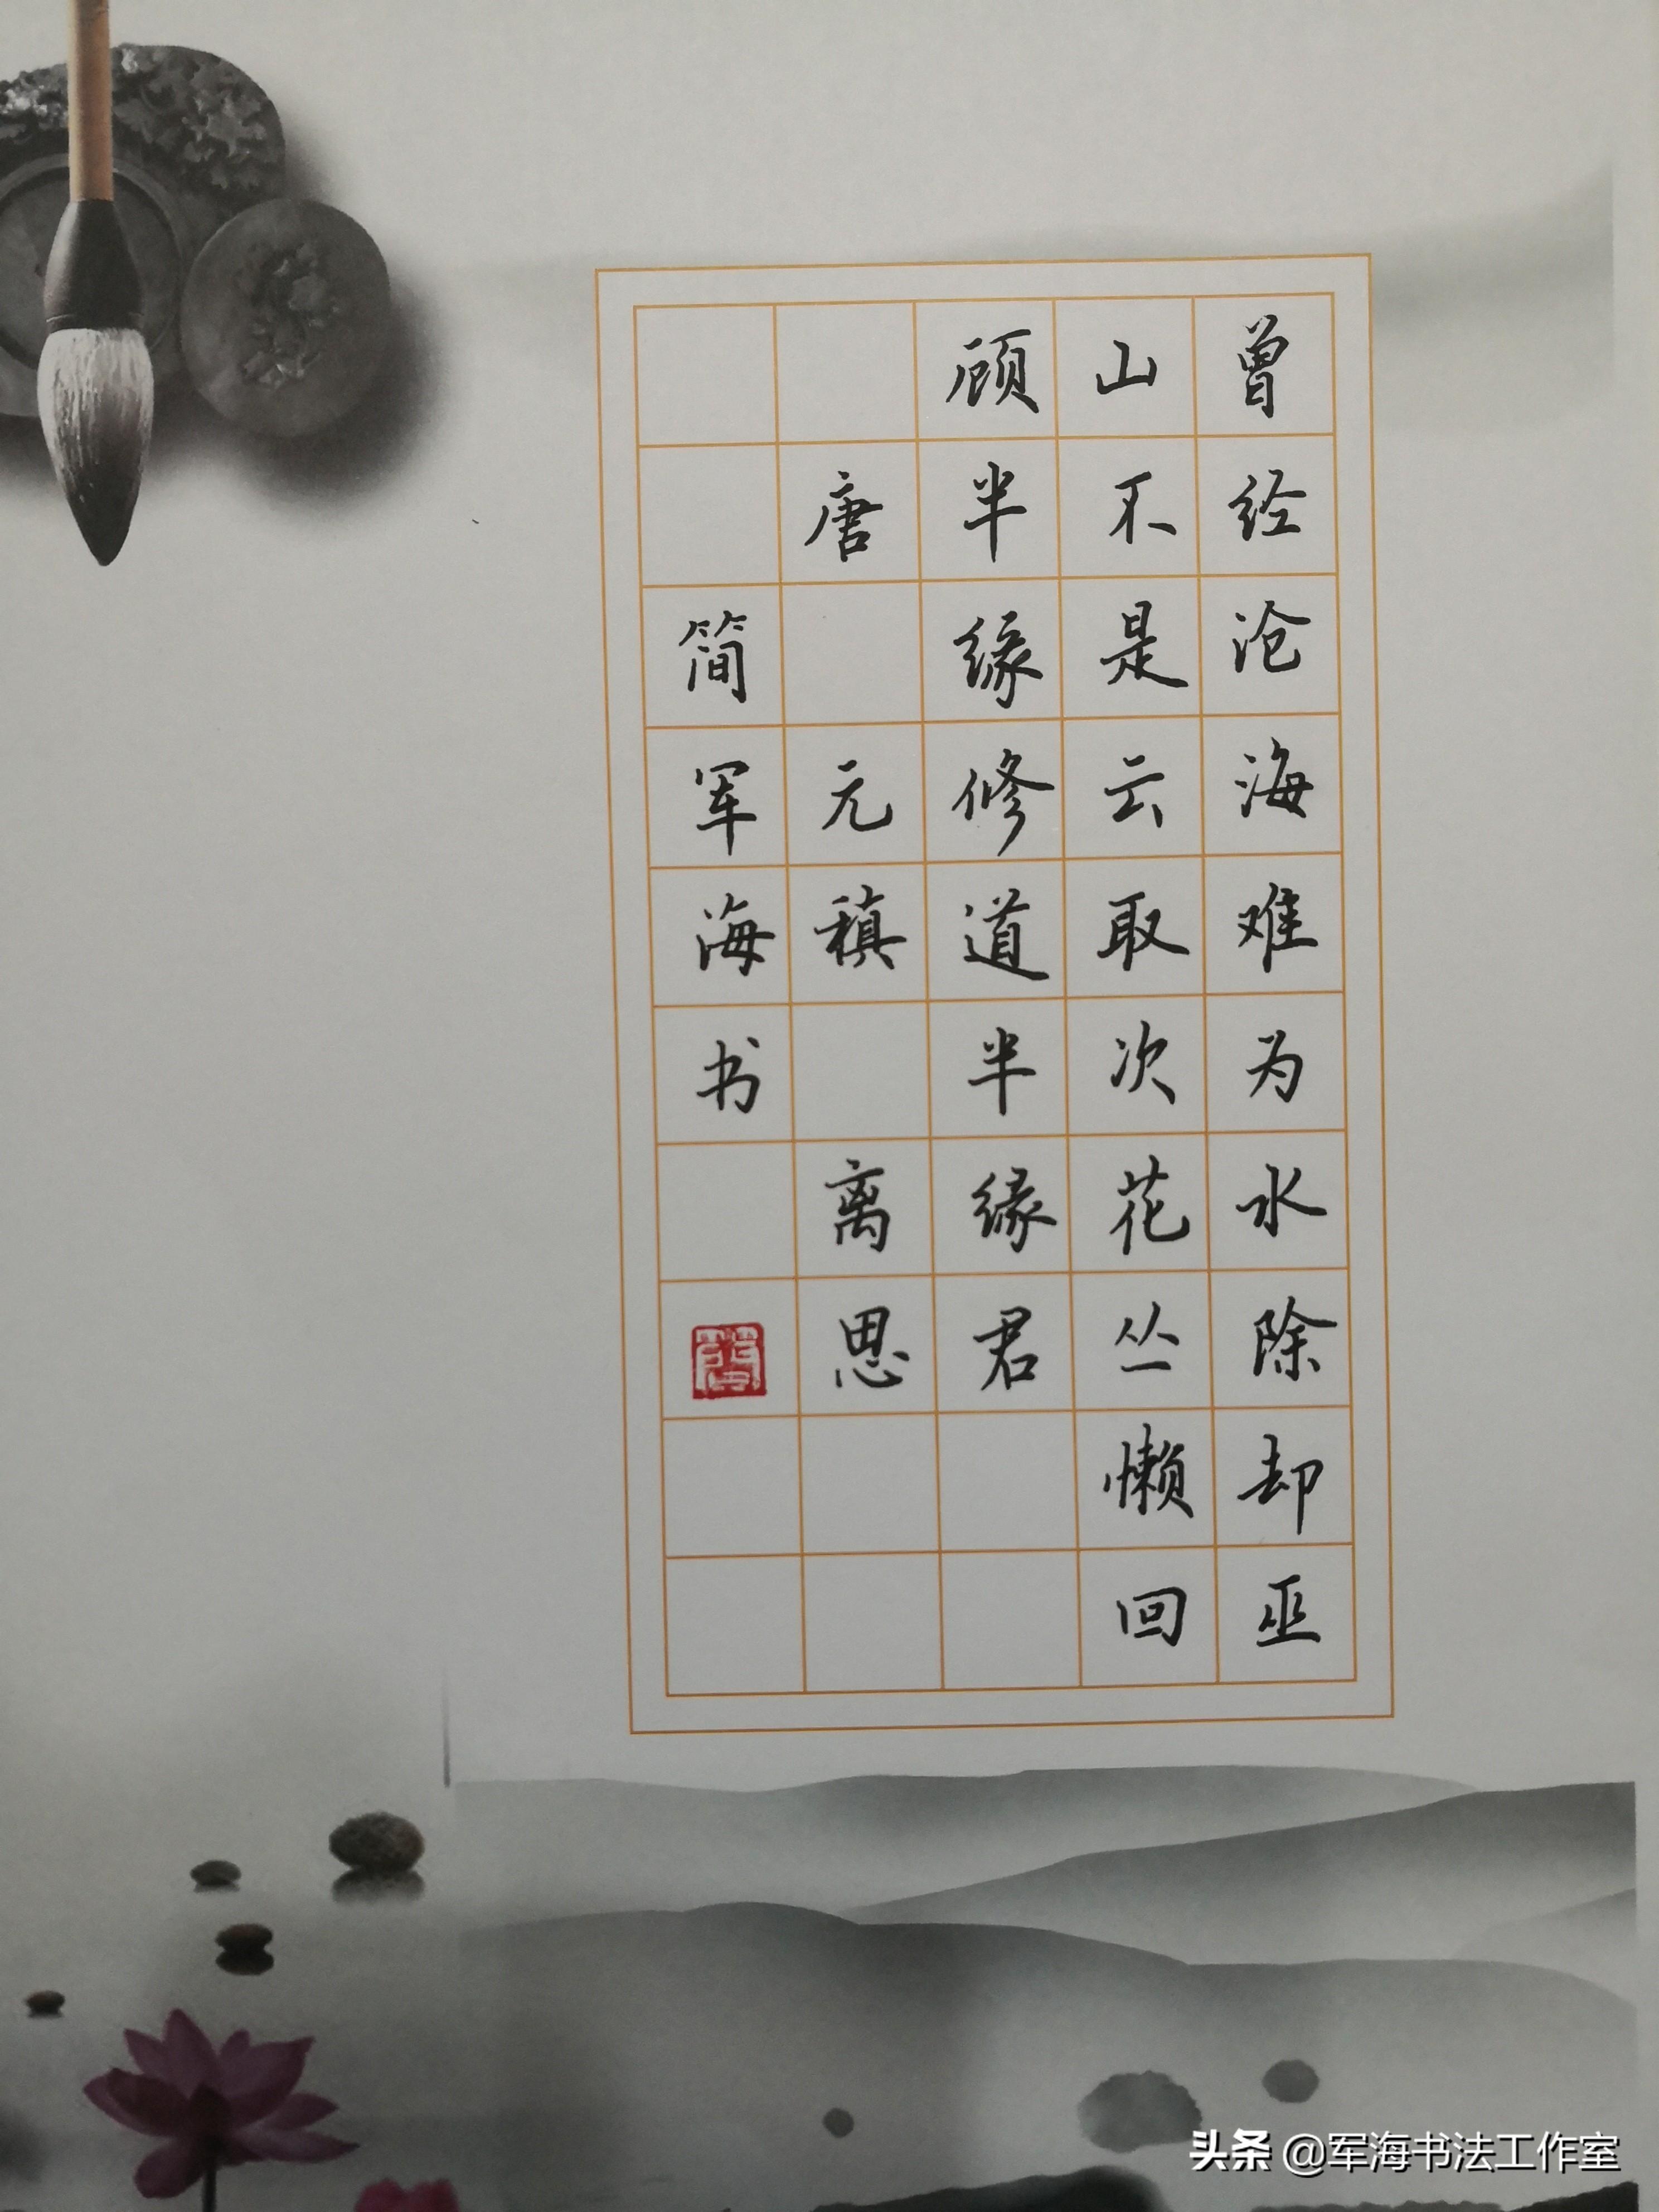 曾经沧海难为水除却巫
山不是云取次花丛懒回
顾半缘修道半缘君
唐 元稹 离思
简军海书
头条 @军海书法工作室